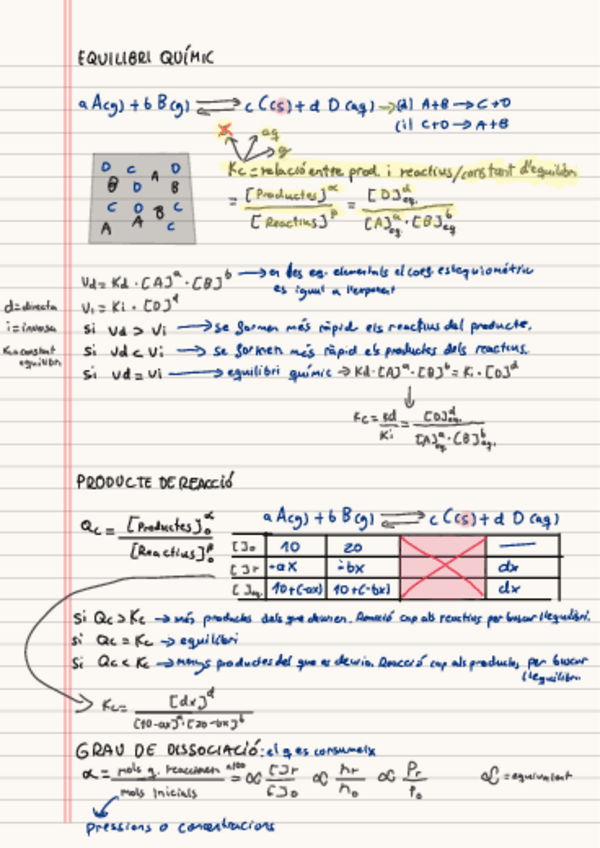 EQUILIBRI QUÍMIC
a A(g) + b B(g) ⇌ c C(s) + d D(aq) → (d) A+B → C+D
(i) C+D → A+B
aq
g
Kc = relació entre prod. i reactius/constant d'equilibri
= [Productes]^α / [Reactius]^β = [D]^d eq. / [A]^a eq. · [B]^b eq.
D C A D
B D B
C D B C
A A C
Vd = Kd · [A]^a · [B]^b → en les eq. elementals el coef. estequiomètric
és igual a l'exponent
d = directa
Vi = Ki · [D]^d
i = inversa
si Vd > Vi → se formen més ràpid els reactius del producte.
K = constant equilibri
si Vd < Vi → se formen més ràpid els productes dels reactius.
si Vd = Vi → equilibri químic → Kd · [A]^a · [B]^b = Ki · [D]^d
Kc = Kd / Ki = [D]^d eq. / [A]^a eq. · [B]^b eq.
PRODUCTE DE REACCIÓ
Qc = [Productes]₀^α / [Reactius]₀^β
a A(g) + b B(g) ⇌ c C(s) + d D(aq)
[ ]₀ 10 20 —
[ ]r -ax -bx dx
[ ]eq 10+(-ax) 10+(-bx) dx
si Qc > Kc → més productes dels que deurien. Reacció cap als reactius per buscar l'equilibri.
si Qc = Kc → equilibri
si Qc < Kc → menys productes del que es deuria. Reacció cap als productes per buscar
l'equilibri.
Kc = [dx]^d / [10-ax]^a · [20-bx]^b
GRAU DE DISSOCIACIÓ: el q es consumeix
α = mols q. reaccionen / mols inicials ×100 = ∝ [ ]r / [ ]₀ ∝ nr / n₀ ∝ Pr / P₀ ∝ = equivalent
pressions o concentracions